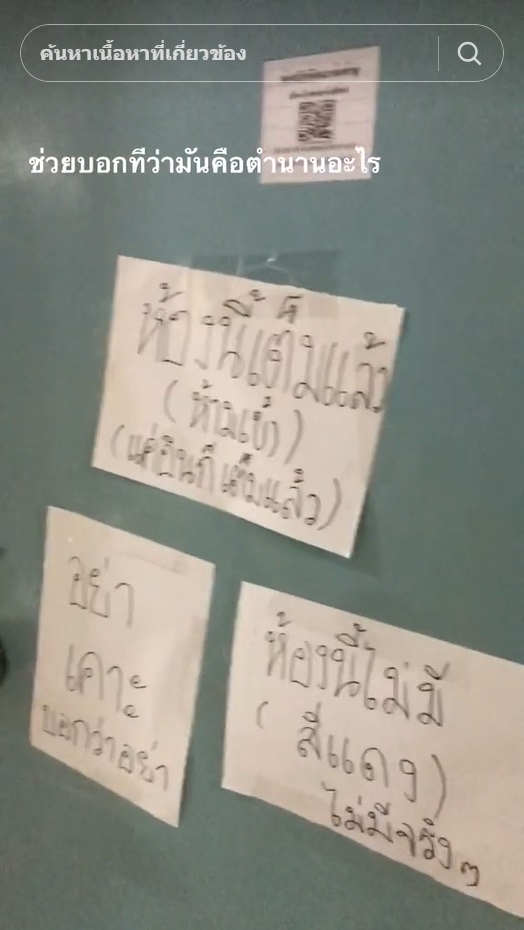 ค้นหาเนื้อหาที่เกี่ยวข้อง
ช่วยบอกทีว่ามันคือตำนานอะไร
ห้องนี้เต็มแล้ว
(ห้ามเข้า)
(แค่อินก็เต็มแล้ว)
อย่า
เคาะ
บอกว่าอย่า
ห้องนี้ไม่มี
(สีแดง)
ไม่มีจริงๆ